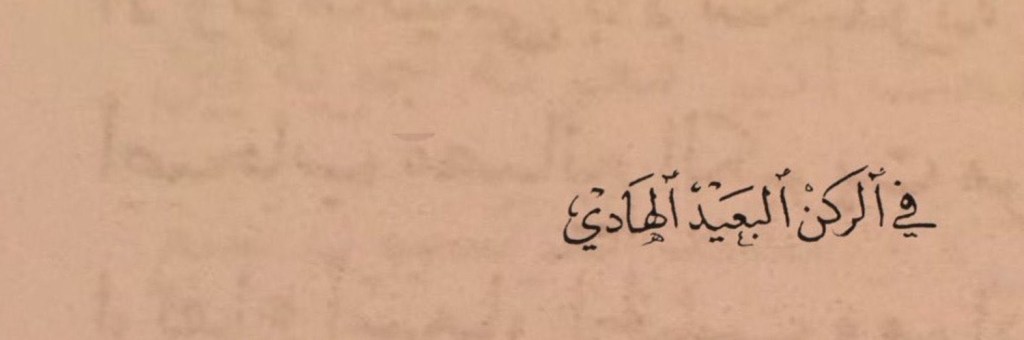 في ٱلركنْ ٱلبعَيْدْ ٱلهَادْي